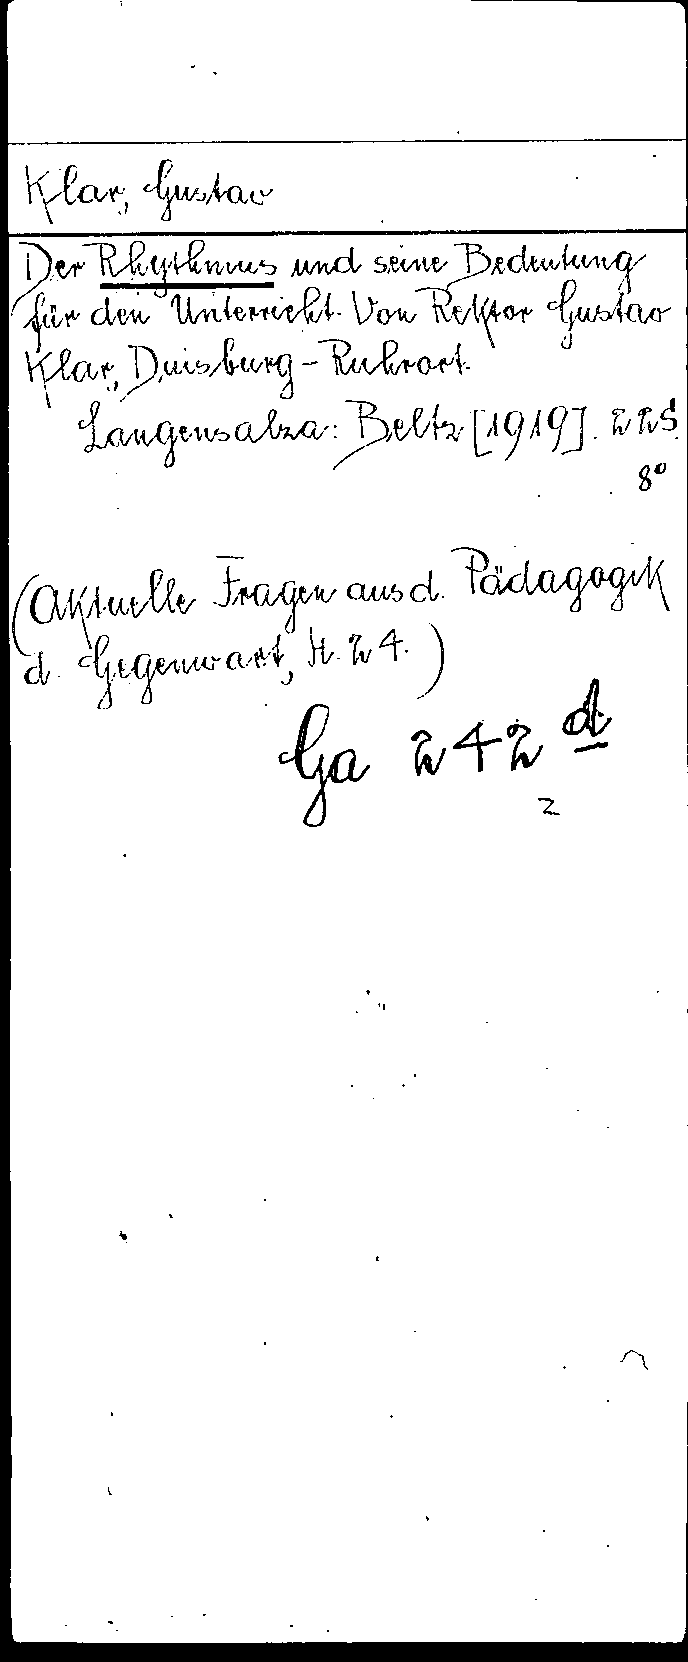 Klar, Gustav
Der Rhythmus und seine Bedeutung
für den Unterricht. Von Rektor Gustav
Klar, Duisburg-Ruhrort.
Langensalza: Beltz [1919]. 22 S.
8°
(Aktuelle Fragen aus d. Pädagogik
d. Gegenwart, H. 24.)
Ga 242 d
2